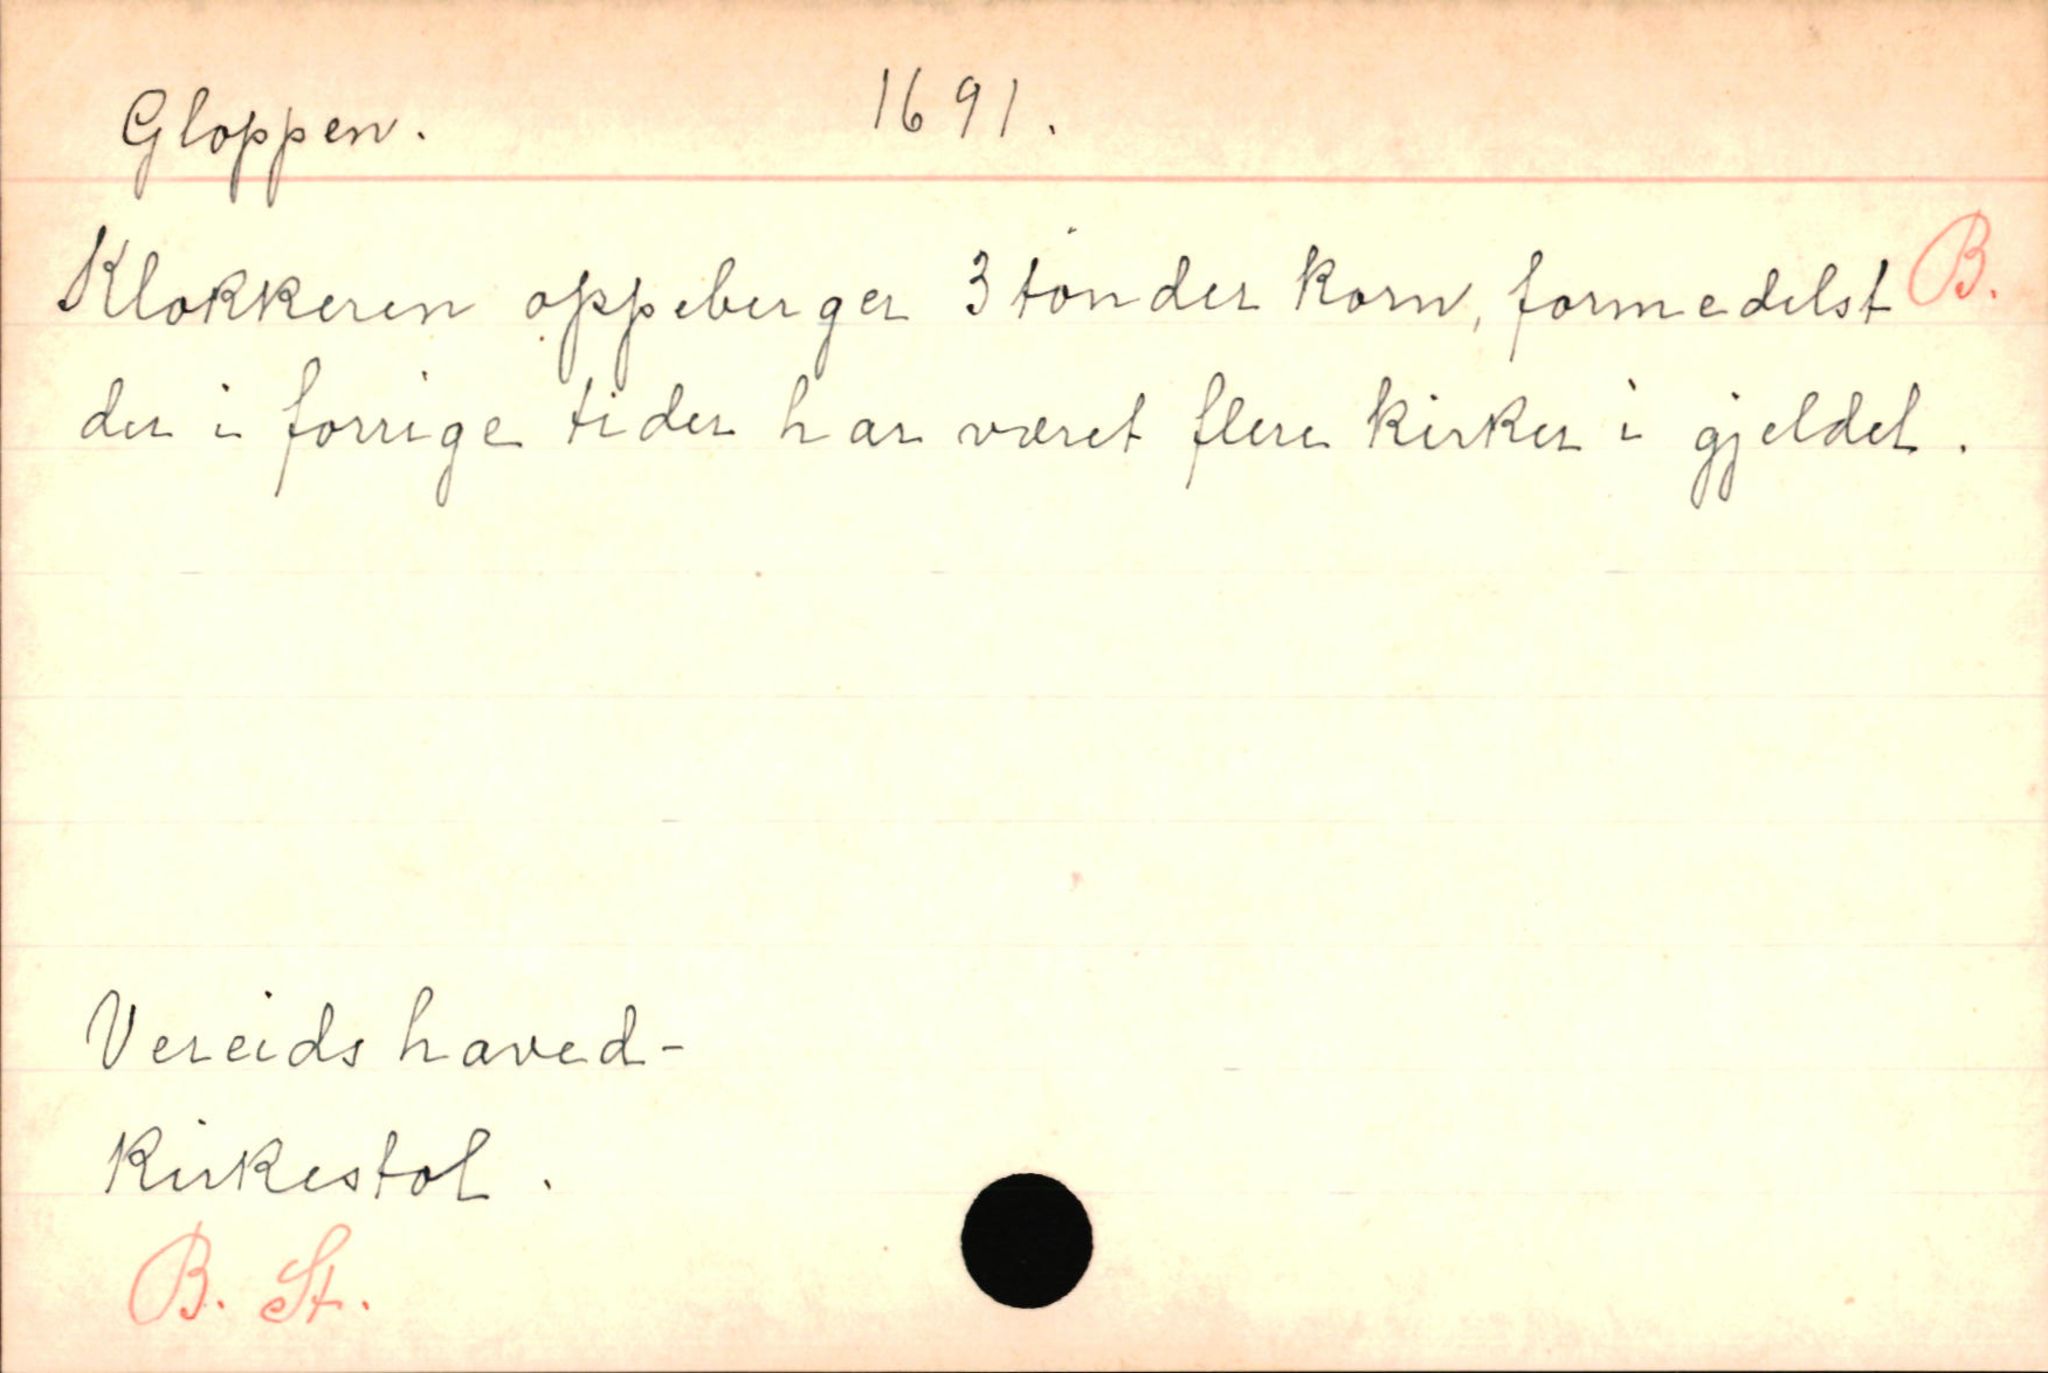 Gloppen. 1691.
Klokkeren oppeberger 3 tönder korn, formedelst B.
der i forrige tider har været flere kirker i gjeldet.
Vereids hoved-
kirkestol.
B. St.